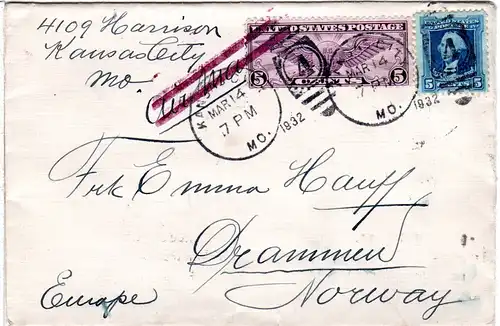 4109 Harrison
Kansas City
Mo.
Air Mail
UNITED STATES POSTAGE
5 CENTS 5
UNITED STATES POSTAGE
5 CENTS 5
KAN
MAR 14
7 PM
MO. 1932
MAR 14
7 PM
MO. 1932
Frk Emma Hauff
Drammen
Norway
Europe